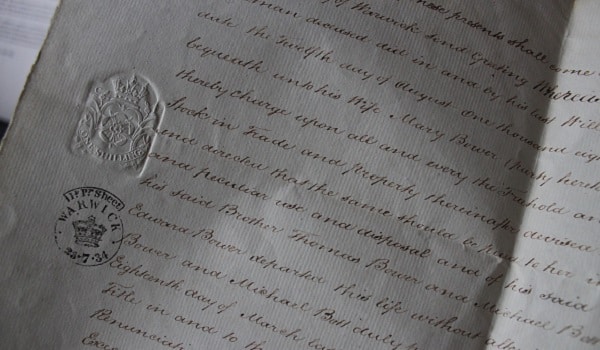 of Warwick Send Greeting Whereas
deceased did in and by his last Will
date the Twelfth day of August One thousand
bequeath unto his Wife Mary Bower
thereby charge upon all and every the Freehold
Stock in Trade and property thereinafter devised
and directed that the same should be paid to her
and peculiar use and disposal and of his said
his said Brother Thomas Bower and Michael
Edward Bower departed this life without
Bower and Michael Bott duly
Eighteenth day of March
Title in and to the
Renunciation
SHILLING
Pr. Sheet
WARWICK
25·7·34